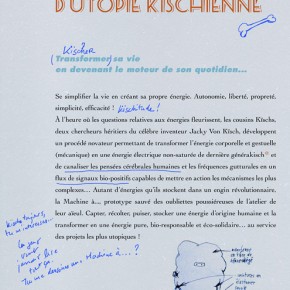 D'UTOPIE KISCHIENNE
Kischer
(Transformer) sa vie
en devenant le moteur de son quotidien...
Se simplifier la vie en créant sa propre énergie. Autonomie, liberté, propreté,
simplicité, efficacité ! Kischitude !
À l'heure où les questions relatives aux énergies fleurissent, les cousins Kïschs,
deux chercheurs héritiers du célèbre inventeur Jacky Von Kïsch, développent
un procédé novateur permettant de transformer l'énergie corporelle et gestuelle
(mécanique) en une énergie électrique non-saturée de dernière générakisch
de canaliser les pensées cérébrales humaines et les fréquences gutturales en un
flux de signaux bio-positifs capables de mettre en action les mécanismes les plus
complexes... Autant d'énergies qu'ils stockent dans un engin révolutionnaire,
la Machine à..., prototype sauvé des oubliettes poussiéreuses de l'atelier de
leur aïeul. Capter, récolter, puiser, stocker une énergie d'origine humaine et la
transformer en une énergie pure, bio-responsable et éco-solidaire... au service
des projets les plus utopiques !